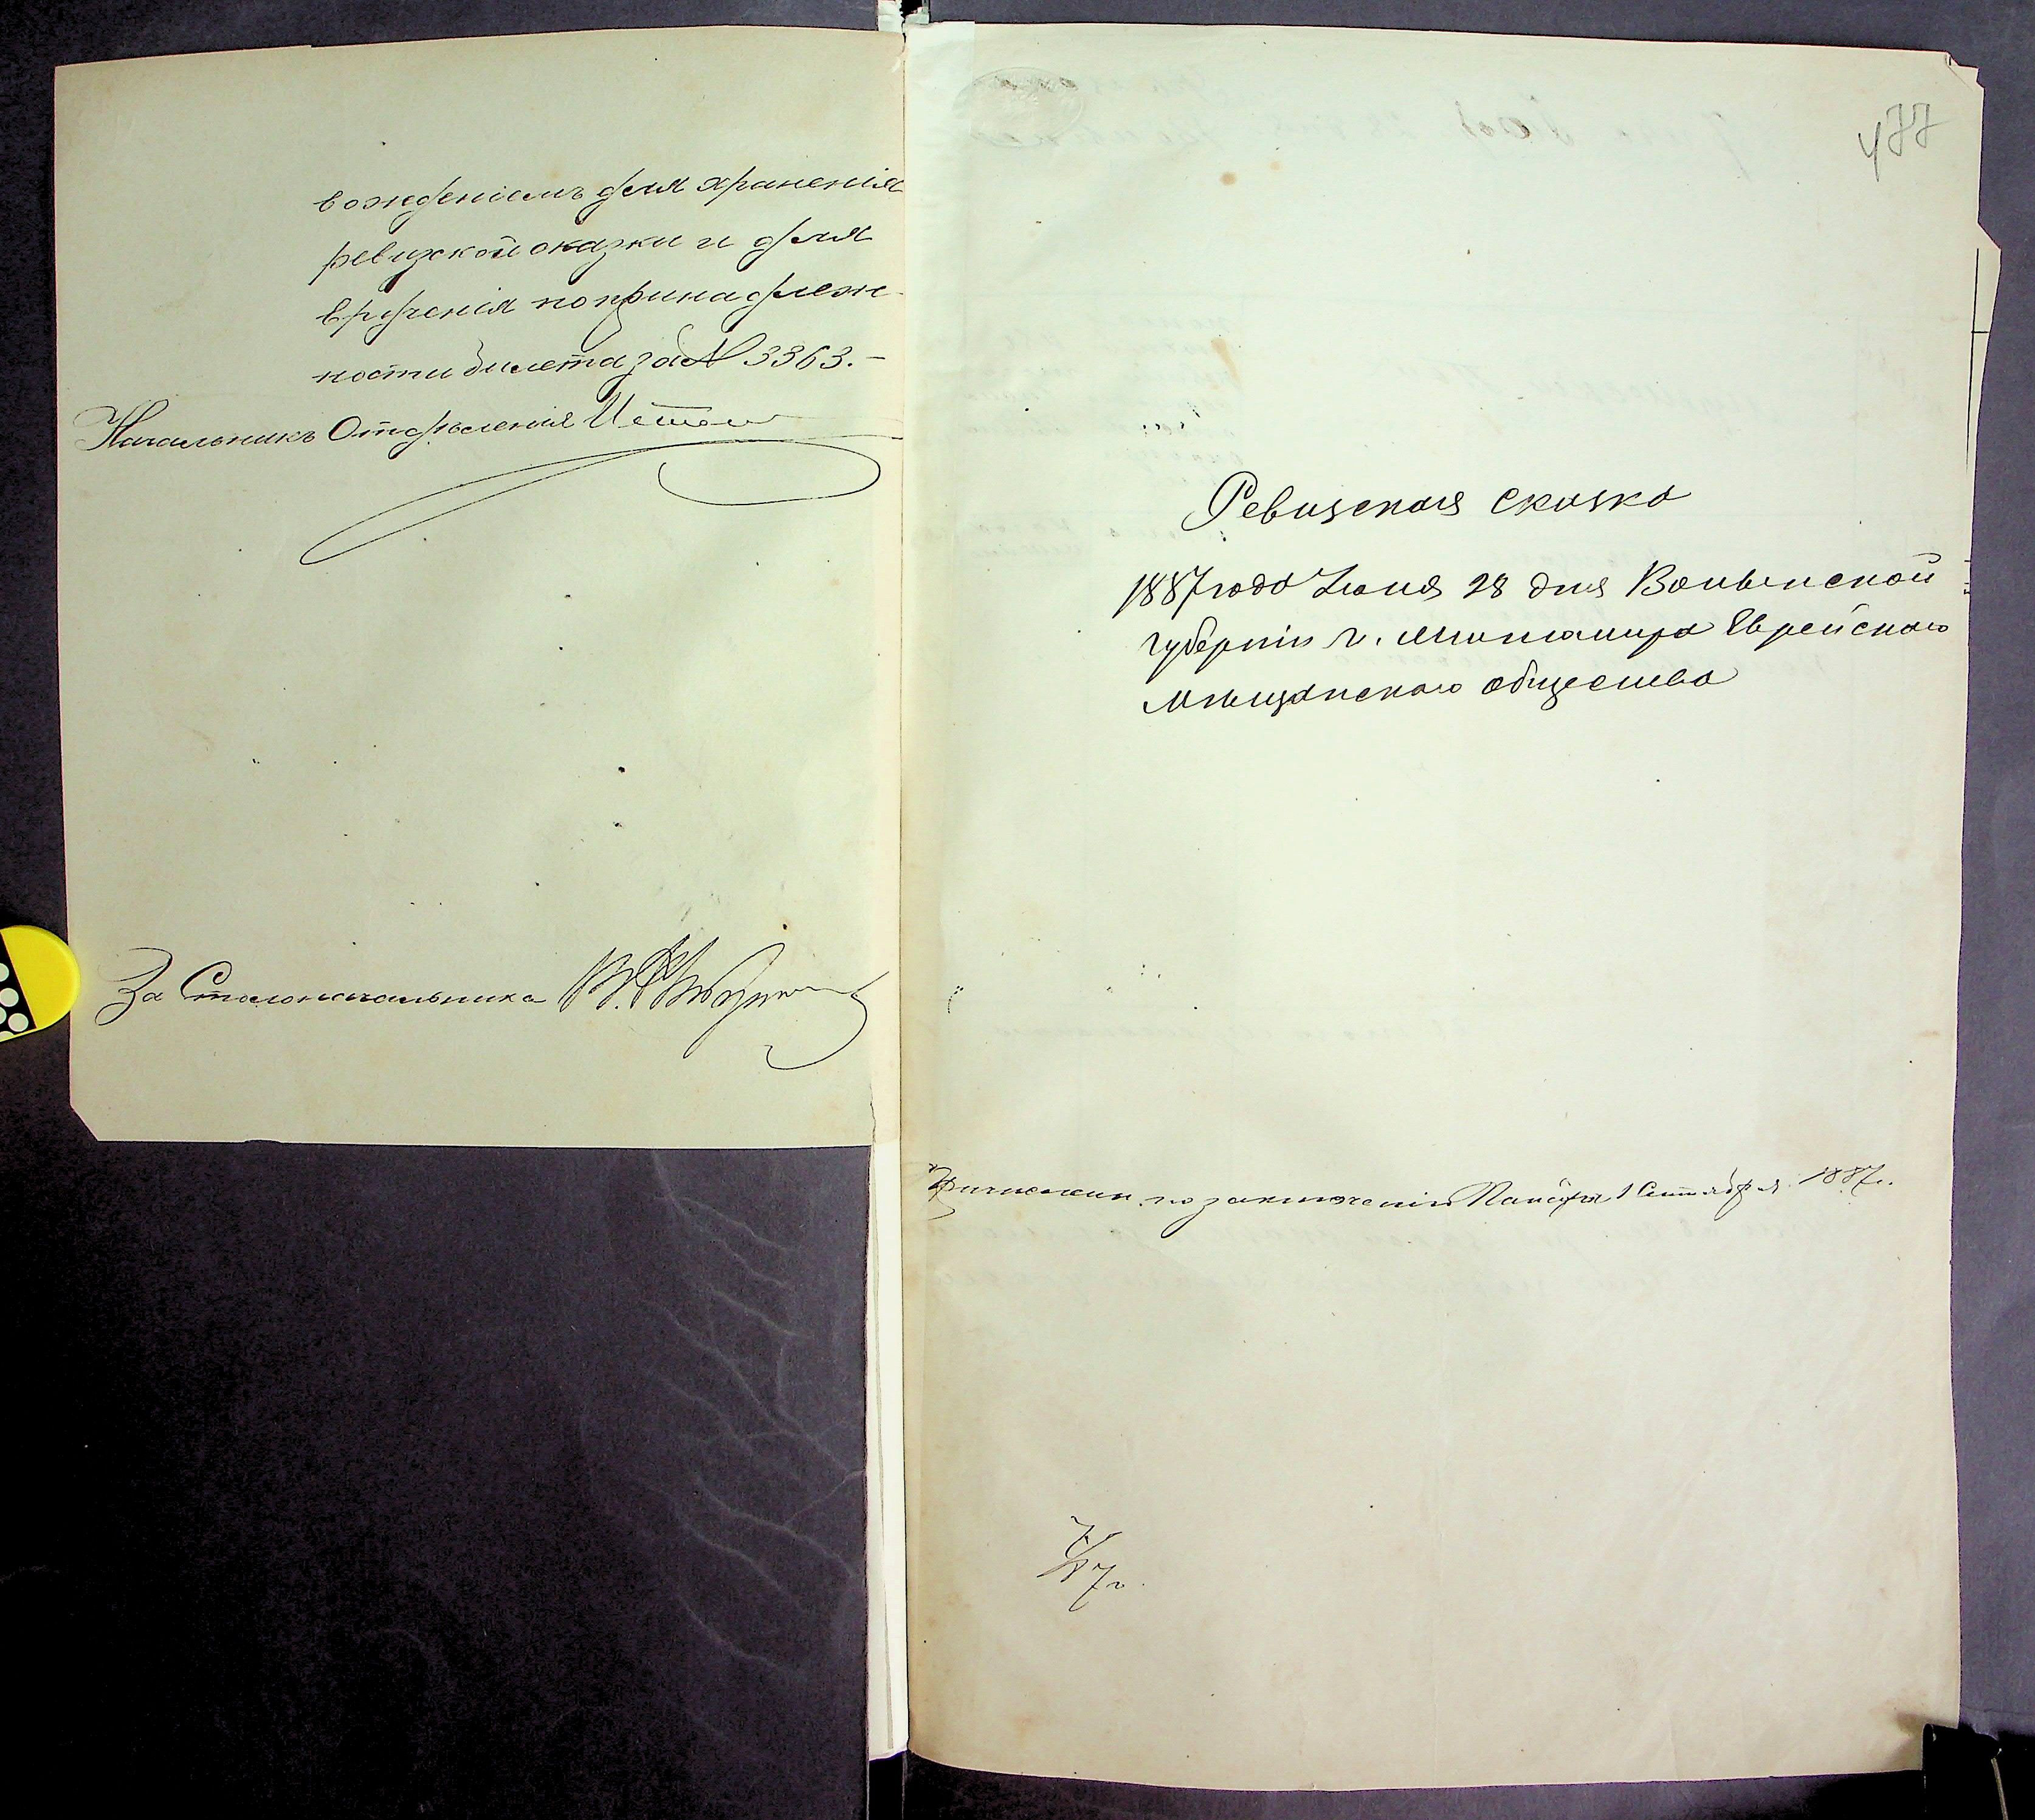 вожденіемъ для храненія
ревизской сказки и для
врученія по принадлеж-
ности билета за № 3363.-
Начальникъ Отдѣленія
За Столоначальника
477
Ревизская сказка
1887 года Іюня 28 дня Волынской
губерніи г. Житомира Еврейскаго
Мѣщанскаго общества
по заключенію Палаты 1 Сентября 1887 г.